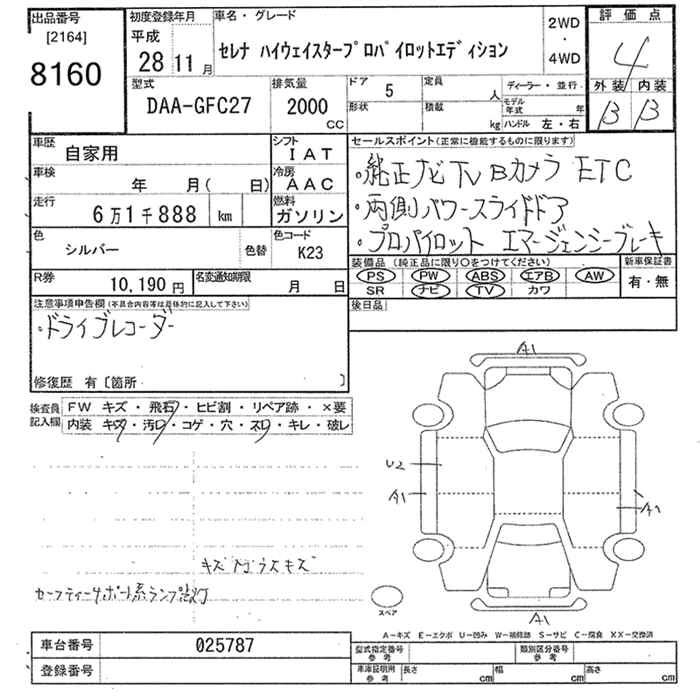 出品番号
[2164]
8160
初度登録年月
平成
28 11 月
車名・グレード
セレナ ハイウェイスタープロパイロットエディション
2WD
・
4WD
評価点
4
外装 内装
B B
型式
DAA-GFC27
排気量
2000
CC
ドア 5
形状
定員 人
積載 kg
ディーラー・並行
モデル年式 年
ハンドル 左・右
車歴
自家用
シフト
IAT
車検
年 月( 日)
冷房
AAC
走行
6万1千888 km
燃料
ガソリン
色
シルバー
色替
色コード
K23
R券
10,190円
名変通知期限
月 日
セールスポイント(正常に機能するものに限ります)
・純正ナビTV Bカメラ ETC
・両側パワースライドドア
・プロパイロット エマージェンシーブレーキ
装備品 (純正品に限り○をつけてください)
PS PW ABS エアB AW
SR ナビ TV カワ
新車保証書
有・無
後日品
注意事項申告欄(不具合内容等は具体的に記入して下さい)
・ドライブレコーダー
修復歴 有〔箇所 〕
検査員記入欄
FW キズ・飛石・ヒビ割・リペア跡・×要
内装 キズ・汚れ・コゲ・穴・スレ・キレ・破レ
A1
U2
A1
A1
キズ スレ ガラスキズ
セーフティーサポート系ランプ点灯
スペア
A1
A-キズ E-エクボ U-凹み W-補修跡 S-サビ C-腐食 XX-交換済
車台番号 025787
登録番号
型式指定番号
参考
類別区分番号
参考
車庫証明用
参考
長さ cm
幅 cm
高さ cm